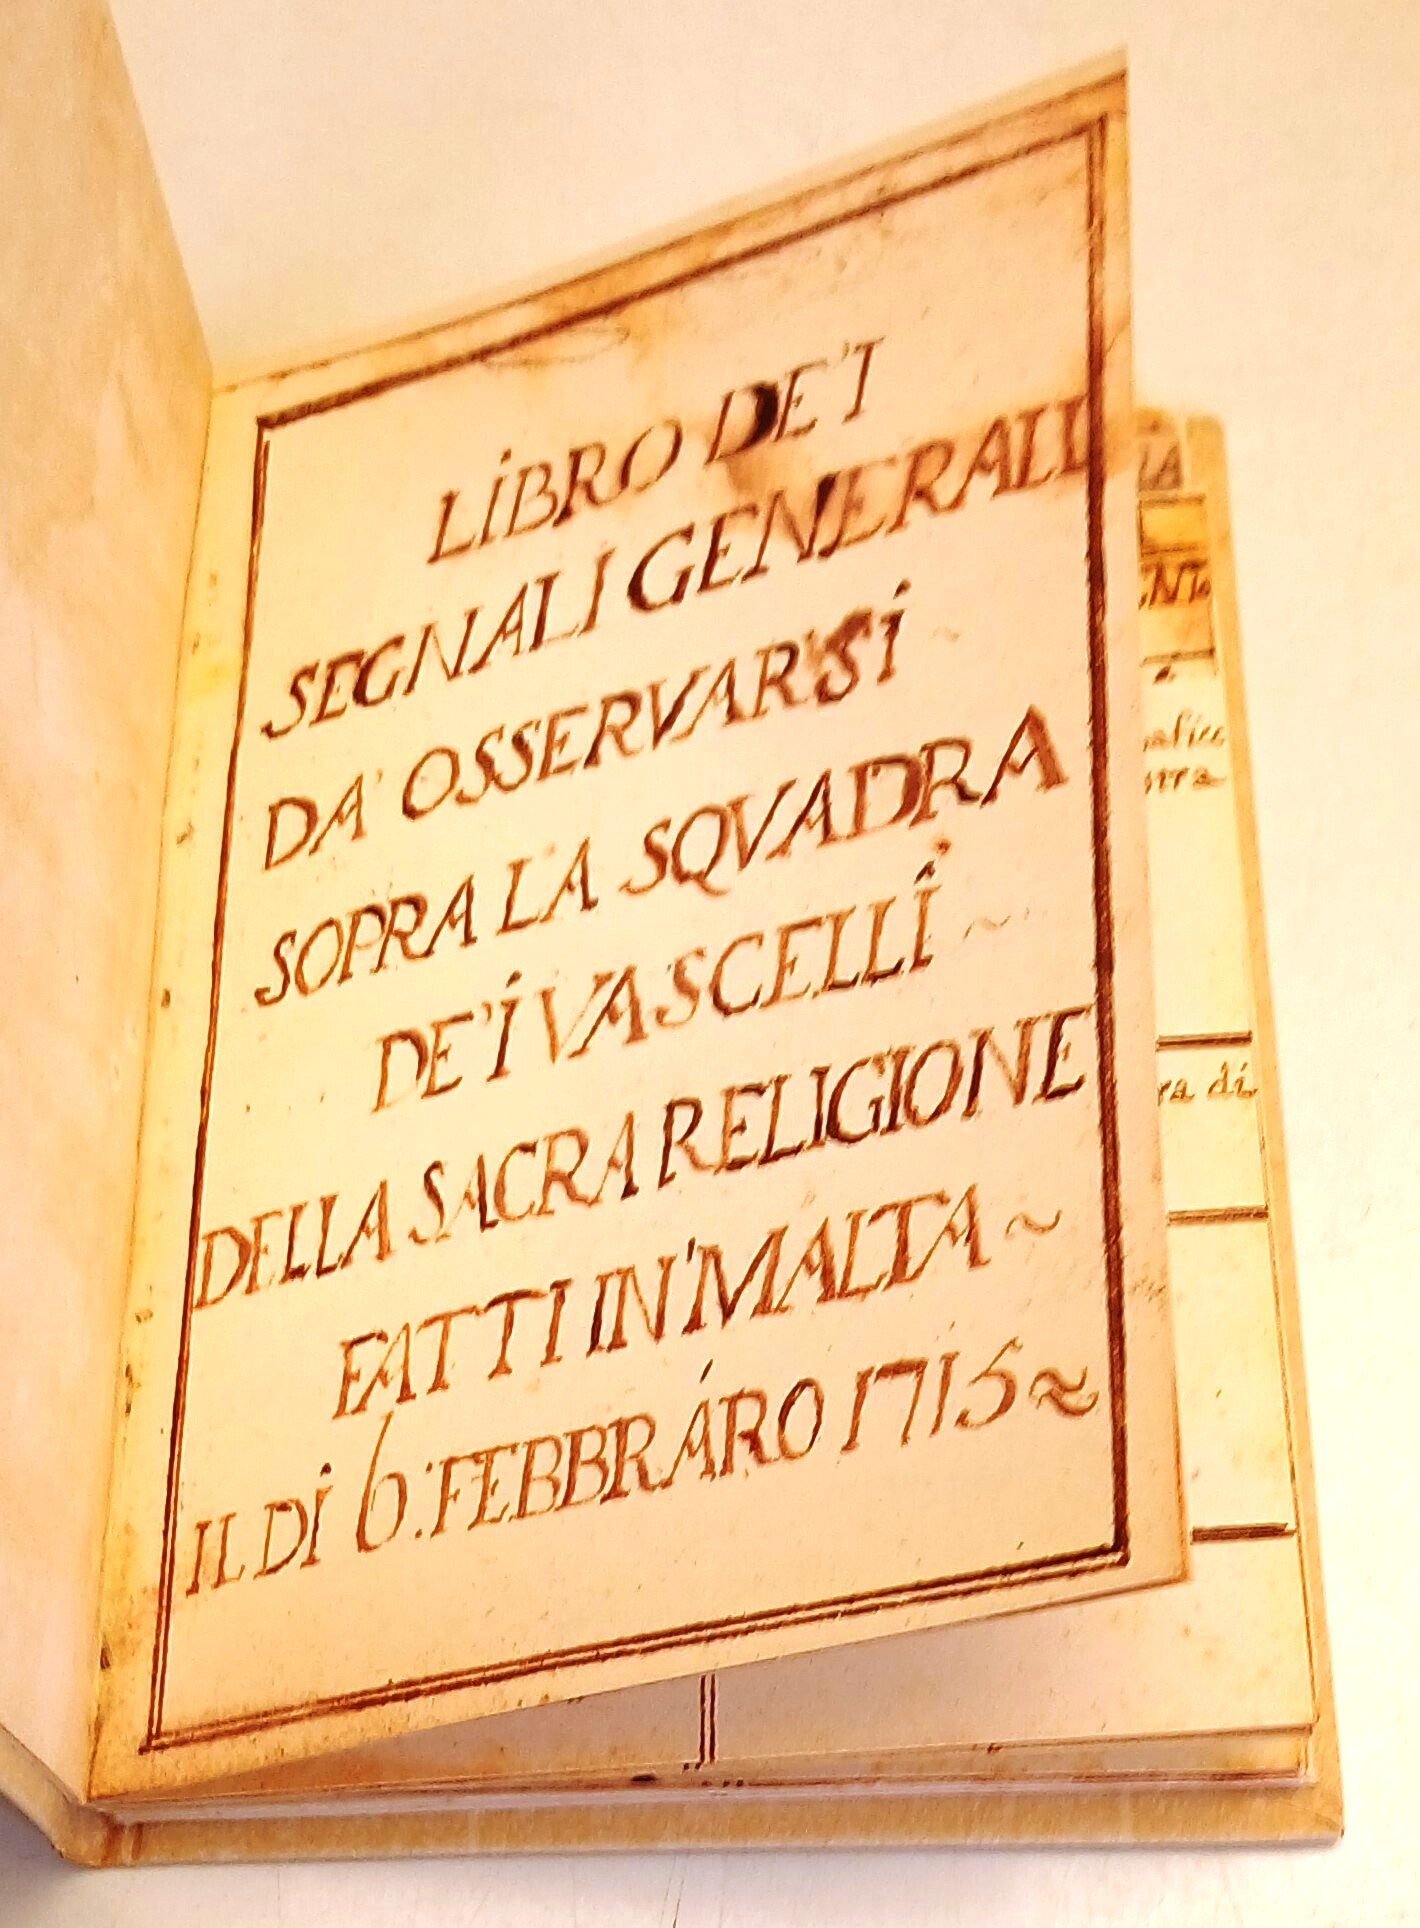 LIBRO DE'I
SEGNALI GENERALI
DA' OSSERVARSI ~
SOPRA LA SQVADRA
DE'I VASCELLI ~
DELLA SACRA RELIGIONE
FATTI IN MALTA ~
IL DI 6. FEBBRARO 1715 ~
ra di